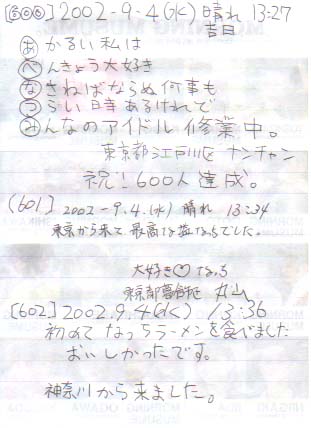 [600] 2002-9.4(水) 晴れ 13:27
吉日
あかるい私は
べんきょう大好き
なさねばならぬ何事も
つらい時あるけれど
みんなのアイドル修業中。
東京都江戸川区 ナンチャン
祝!600人達成。
(601) 2002-9.4.(水) 晴れ 13:34
東京から来て 最高な なっちでした。
大好き♡なっち
東京都 丸山
[602] 2002.9.4(水) 13:36
初めてなっちラーメンを食べました
おいしかったです。
神奈川から来ました。